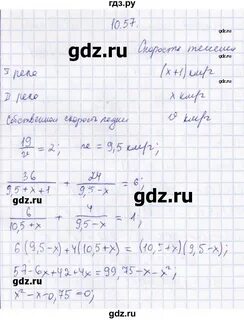 гдз.ру
10.57.
gdz.ru
Скорость течения
I река (x+1) км/г
gdz.ru
II река x км/г
Собственная скорость лодки v км/г
19/v = 2; v = 9,5 км/г
36/(9,5+x+1) + 24/(9,5-x) = 6;
6/(10,5+x) + 4/(9,5-x) = 1;
gdz.ru
6(9,5-x)+4(10,5+x)=(10,5+x)(9,5-x);
57-6x+42+4x=99,75-x-x²;
x²-x-0,75=0;
gdz.ru